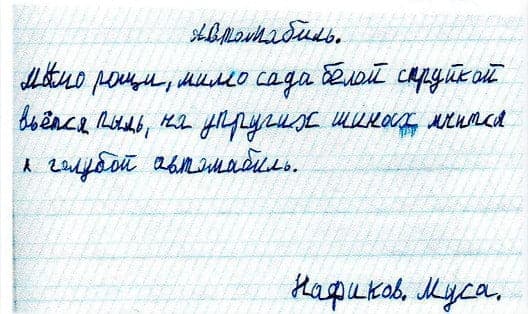 Автомабиль.
Мимо рощи, мимо сада белой струйкой
вьётся пыль, на упругих шинах мчится
голубой автомабиль.
Нафиков. Муса.